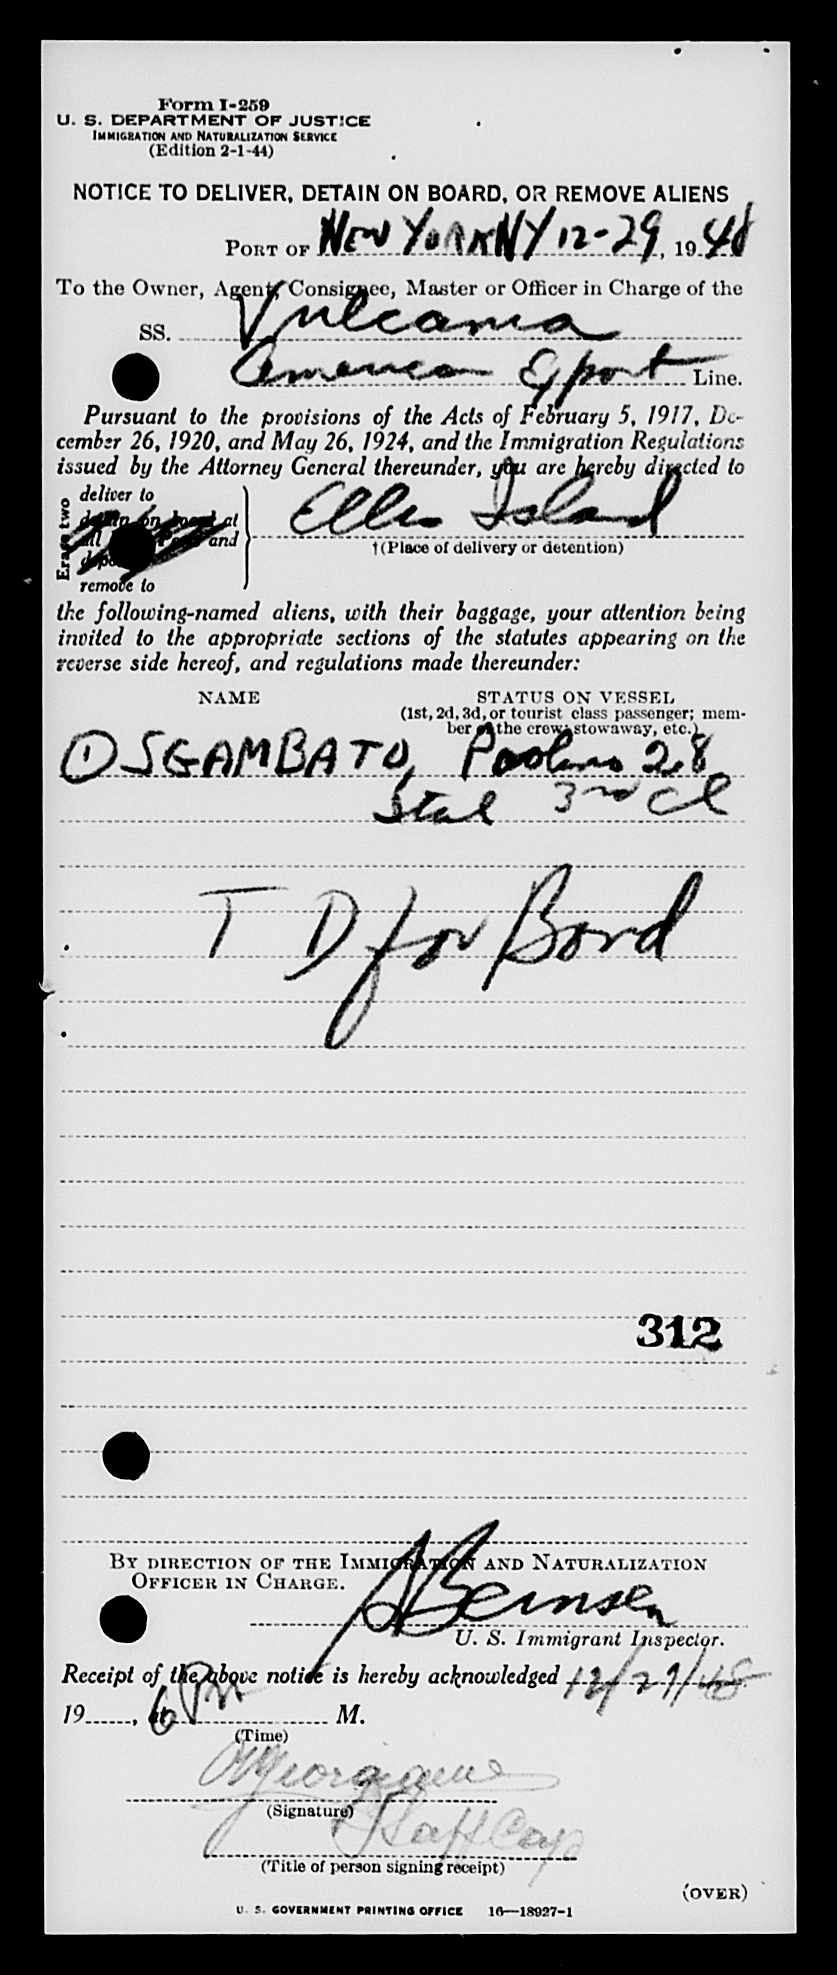 Form I-259
U. S. DEPARTMENT OF JUSTICE
IMMIGRATION AND NATURALIZATION SERVICE
(Edition 2-1-44)
NOTICE TO DELIVER, DETAIN ON BOARD, OR REMOVE ALIENS
PORT OF NEW YORK NY 12-29, 1948
To the Owner, Agent, Consignee, Master or Officer in Charge of the
SS. Vulcania
American Export Line.
Pursuant to the provisions of the Acts of February 5, 1917, De-
cember 26, 1920, and May 26, 1924, and the Immigration Regulations
issued by the Attorney General thereunder, you are hereby directed to
Erase two
deliver to
detain on board at
all and
remove to
Ellis Island
†(Place of delivery or detention)
the following-named aliens, with their baggage, your attention being
invited to the appropriate sections of the statutes appearing on the
reverse side hereof, and regulations made thereunder:
NAME STATUS ON VESSEL
(1st, 2d, 3d, or tourist class passenger; mem-
ber of the crew, stowaway, etc.)
① SGAMBATO, Paolino 28
Ital 3rd Cl
T D for Bond
312
BY DIRECTION OF THE IMMIGRATION AND NATURALIZATION
OFFICER IN CHARGE.
U. S. Immigrant Inspector.
Receipt of the above notice is hereby acknowledged 12/29/48
19......, at 6 Pm M.
(Time)
(Signature)
Staff Cap
(Title of person signing receipt)
(OVER)
U. S. GOVERNMENT PRINTING OFFICE 16—18927-1